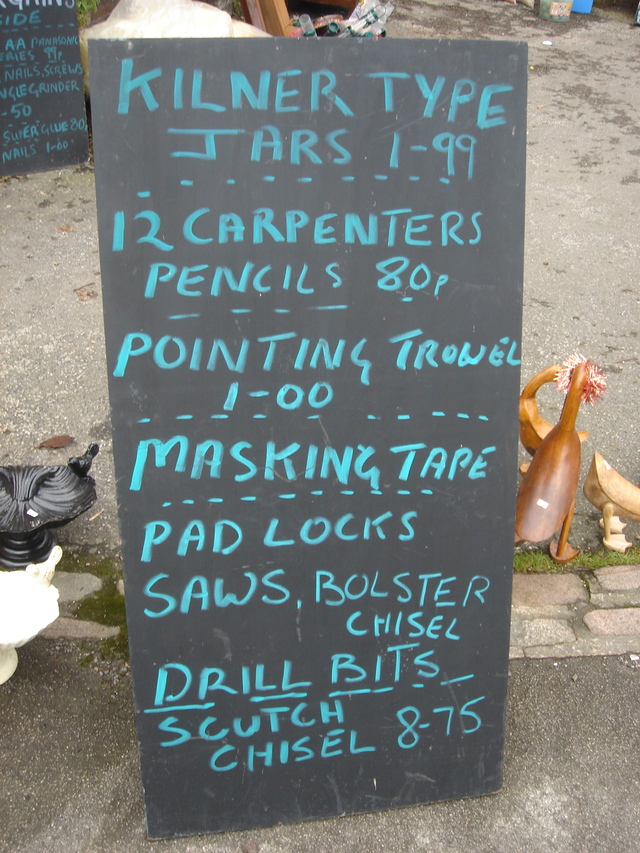 SIDE
AA PANASONIC
99p
NAILS, SCREWS
GRINDER
-50
GLUE 80
NAILS 1-00
KILNER TYPE
JARS 1-99
12 CARPENTERS
PENCILS 80p
POINTING TROWEL
1-00
MASKING TAPE
PAD LOCKS
SAWS, BOLSTER
CHISEL
DRILL BITS
SCUTCH
CHISEL 8-75